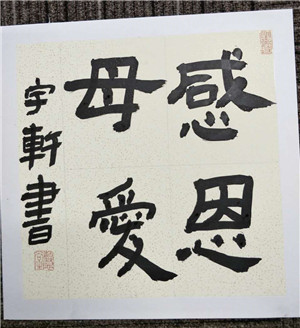 感恩
母愛
宇軒書